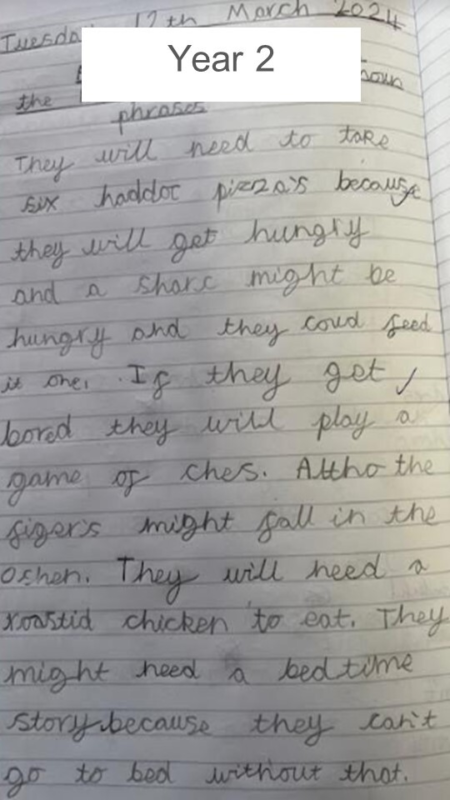 Tuesda 12th March 2024
Year 2
the noun
phrases
They will need to take
six haddoc pizza's because
they will get hungry
and a sharc might be
hungry and they coud feed
it one. If they get
bored they will play a
game of ches. Altho the
figers might fall in the
oshen. They will need a
roastid chicken to eat. They
might need a bedtime
story because they can't
go to bed without that.